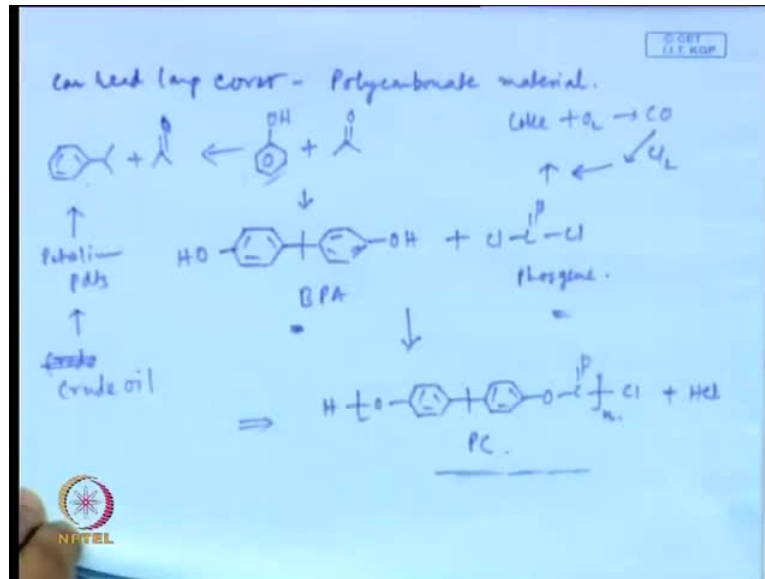 © CET
I.I.T. KGP
Car head lamp cover - Polycarbonate material.
Coke + O2 → CO
OH
O
O
+
←
+
Cl2
Petroleum
pdts
HO
OH
+
Cl-C-Cl
O
BPA
Phosgene.
Crude oil
⇒
H
O
O-C
O
n
Cl + HCl
PC.
NPTEL